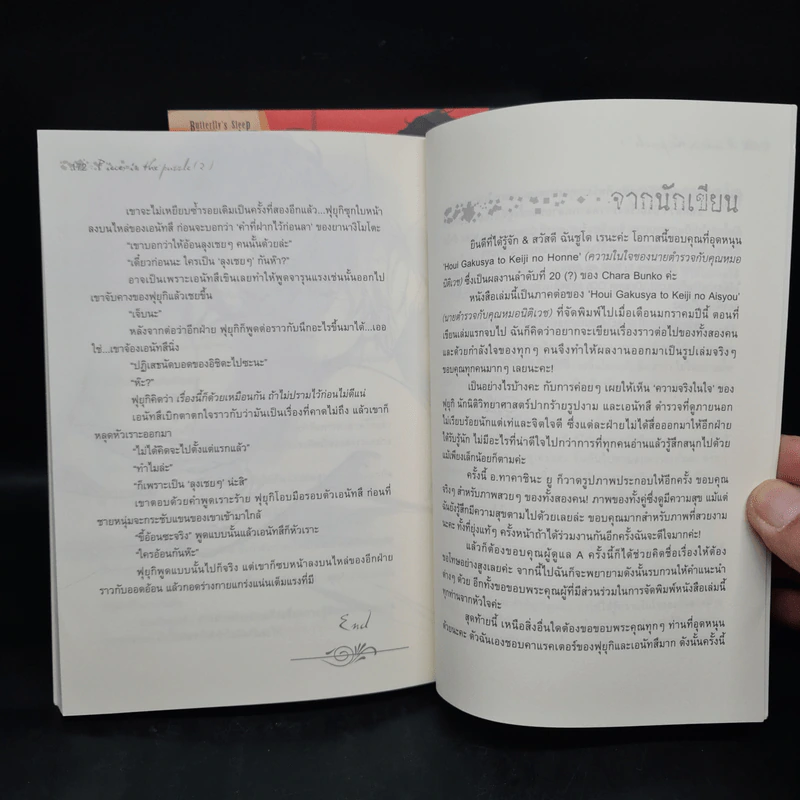 Butterfly's Sleep
the puzzle! 2 !
เขาจะไม่เหยียบซ้ำรอยเดิมเป็นครั้งที่สองอีกแล้ว...ฟุยุกิซุกใบหน้า
ลงบนไหล่ของเอนัทสึ ก่อนจะบอกว่า 'คำที่ฝากไว้ก่อนลา' ของยานางิโมโตะ
"เขาบอกว่าให้อ้อนลุงเชยๆ คนนั้นด้วยล่ะ"
"เดี๋ยวก่อนนะ ใครเป็น 'ลุงเชยๆ' กันห้า?"
อาจเป็นเพราะเอนัทสึเขินเลยทำให้พูดจารุนแรงเช่นนั้นออกไป
เขาจับคางของฟุยุกิแล้วเชยขึ้น
"เจ็บนะ"
หลังจากต่อว่าอีกฝ่าย ฟุยุกิก็พูดต่อราวกับนึกอะไรขึ้นมาได้...เออ
ใช่...เขาจ้องเอนัทสึนิ่ง
"ปฏิเสธนัดบอดของอิชิดะไปซะนะ"
"ห๊ะ?"
ฟุยุกิคิดว่า เรื่องนี้ก็ด้วยเหมือนกัน ถ้าไม่ปรามไว้ก่อนไม่ดีแน่
เอนัทสึเบิกตาตกใจราวกับว่ามันเป็นเรื่องที่คาดไม่ถึง แล้วเขาก็
หลุดหัวเราะออกมา
"ไม่ได้คิดจะไปตั้งแต่แรกแล้ว"
"ทำไมล่ะ"
"ก็เพราะเป็น 'ลุงเชยๆ' น่ะสิ"
เขาตอบด้วยคำพูดเราะร้าย ฟุยุกิโอบมือรอบตัวเอนัทสึ ก่อนที่
ชายหนุ่มจะกระชับแขนของเขาเข้ามาใกล้
"ขี้อ้อนซะจริง" พูดแบบนั้นแล้วเอนัทสึก็หัวเราะ
"ใครอ้อนกันห๊ะ"
ฟุยุกิพูดแบบนั้นไปก็จริง แต่เขาก็ซบหน้าลงบนไหล่ของอีกฝ่าย
ราวกับออดอ้อน แล้วกอดร่างกายแกร่งแน่นเต็มแรงที่มี
End
จากนักเขียน
ยินดีที่ได้รู้จัก & สวัสดี ฉันชูโด เรนะค่ะ โอกาสนี้ขอบคุณที่อุดหนุน
'Houi Gakusya to Keiji no Honne' (ความในใจของนายตำรวจกับคุณหมอ
นิติเวช) ซึ่งเป็นผลงานลำดับที่ 20 (?) ของ Chara Bunko ค่ะ
หนังสือเล่มนี้เป็นภาคต่อของ 'Houi Gakusya to Keiji no Aisyou'
(นายตำรวจกับคุณหมอนิติเวช) ที่จัดพิมพ์ไปเมื่อเดือนมกราคมปีนี้ ตอนที่
เขียนเล่มแรกจบไป ฉันก็คิดว่าอยากจะเขียนเรื่องราวต่อไปของทั้งสองคน
และด้วยกำลังใจของทุกๆ คนจึงทำให้ผลงานออกมาเป็นรูปเล่มจริงๆ
ขอบคุณทุกคนมากๆ เลยนะคะ!
เป็นอย่างไรบ้างคะ กับการค่อยๆ เผยให้เห็น 'ความจริงในใจ' ของ
ฟุยุกิ นักนิติวิทยาศาสตร์ปากร้ายรูปงาม และเอนัทสึ ตำรวจที่ดูภายนอก
ไม่เรียบร้อยนักแต่เท่และจิตใจดี ซึ่งแต่ละฝ่ายไม่ได้สื่อออกมาให้อีกฝ่าย
ได้รับรู้นัก ไม่มีอะไรที่น่าดีใจไปกว่าการที่ทุกคนอ่านแล้วรู้สึกสนุกไปด้วย
แม้เพียงเล็กน้อยก็ตามค่ะ
ครั้งนี้ อ.ทาคาชินะ ยู ก็วาดรูปภาพประกอบให้อีกครั้ง ขอบคุณ
จริงๆ สำหรับภาพสวยๆ ของทั้งสองคน! ภาพของทั้งคู่ซึ่งดูมีความสุข แม้แต่
ฉันยังรู้สึกมีความสุขตามไปด้วยเลยล่ะ ขอบคุณมากสำหรับภาพที่สวยงาม
นะคะ ทั้งที่ยุ่งแท้ๆ ครั้งหน้าถ้าได้ร่วมงานกันอีกครั้งฉันจะดีใจมากค่ะ!
แล้วก็ต้องขอบคุณผู้ดูแล A ครั้งนี้ก็ได้ช่วยคิดชื่อเรื่องให้ต้อง
ขอโทษอย่างสูงเลยค่ะ จากนี้ไปฉันก็จะพยายามดังนั้นรบกวนให้คำแนะนำ
ต่างๆ ด้วย อีกทั้งขอขอบพระคุณผู้ที่มีส่วนร่วมในการจัดพิมพ์หนังสือเล่มนี้
ทุกท่านจากหัวใจค่ะ
สุดท้ายนี้ เหนือสิ่งอื่นใดต้องขอขอบพระคุณทุกๆ ท่านที่อุดหนุน
ด้วยนะคะ ตัวฉันเองชอบคาแรคเตอร์ของฟุยุกิและเอนัทสึมาก ดังนั้นครั้งนี้